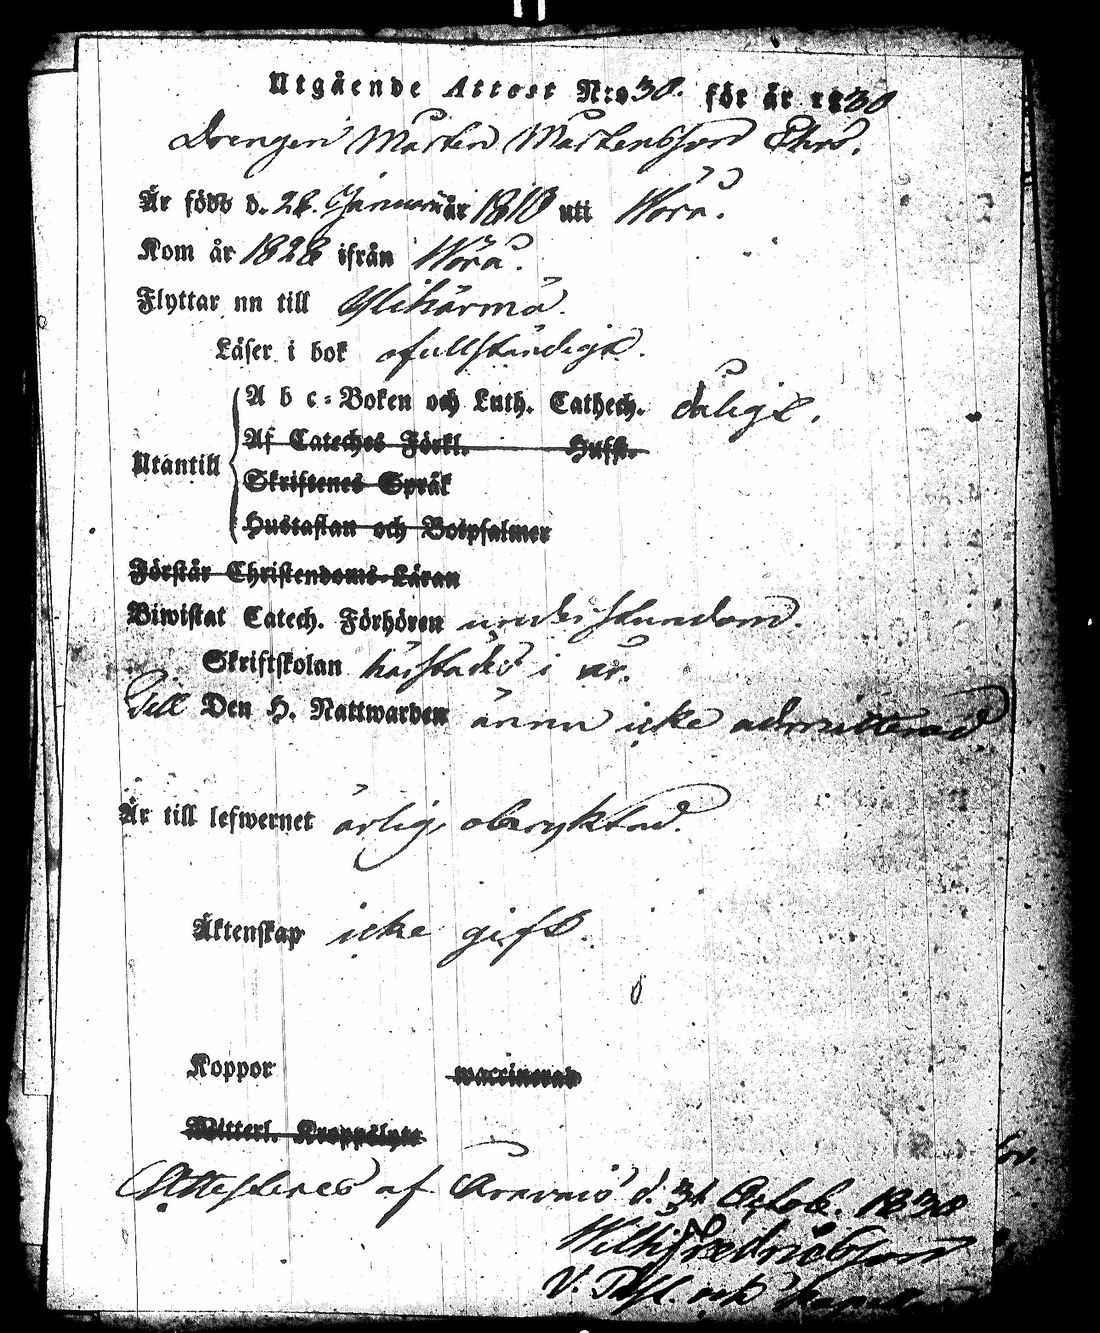 Utgående Attest N:o 30. för år 1830
Drengen Mårten Mårtensson Ehrs.
Är född d. 28. Januarii år 1810 uti Wörå.
Kom år 1828 ifrån Wörå.
Flyttar nn till Ylihärmä.
Läser i bok ofullständigt.
Utantill
A b c-Boken och Luth. Cathech. daligt.
Af Cateches Förkl. Huffst.
Skriftenes Språk
Hustaflan och Botpsalmer
Förstår Christendoms-Läran
Biwistat Catech. Förhören understundom.
Skriftskolan härstädes i år.
Till Den H. Nattwarden ännu icke admitterad
Är till lefwernet ärlig, oberyktad.
Äktenskap icke gift.
Koppor waccinerad
Witterl. Kroppslyte
Attesteres af d. 31 Octob. 1830
V. Past. och